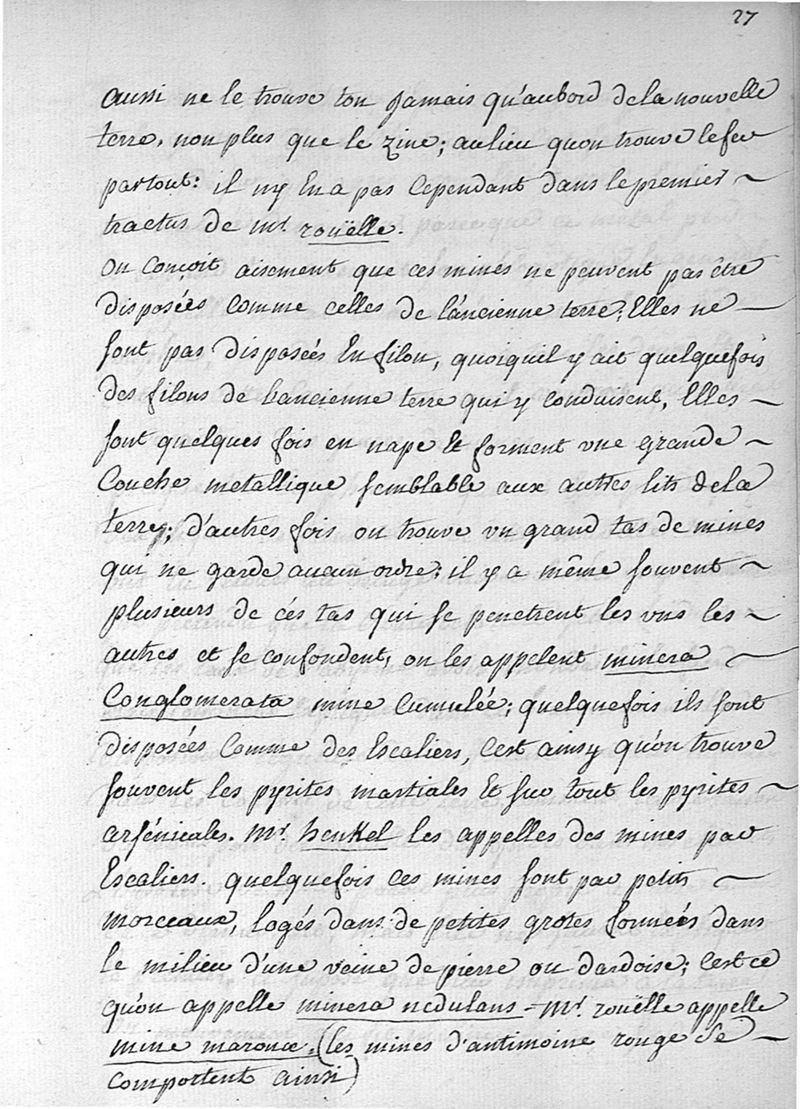 27
aussi ne le trouve ton jamais qu'au bord de la nouvelle
terre, non plus que le zinc; au lieu quon trouve le fer
partout: il ny En a pas Cependant dans le premier ~
tractus de mr. rouëlle.
On Conçoit aisement que ces mines ne peuvent pas être
disposées Comme celles de l'ancienne terre; Elles ne —
sont pas disposées En filon, quoiquil y ait quelquefois
des filons de l'ancienne terre qui y Conduisent, Elles ~
sont quelques fois en nape Et forment une grande ~
Couche metallique semblable aux autres lits de la
terre; d'autres fois on trouve un grand tas de mines
qui ne garde aucun ordre; il y a même souvent ~
plusieurs de cés tas qui se penetrent les uns les ~
autres et se confondent, on les appelent minera ~
Conglomerata mine Cumulée; quelquefois ils sont
disposées Comme des Escaliers, C'est ainsy qu'on trouve
souvent les pyrites martiales Et sur tout les pyrites ~
arsénicales. Mr. henkel les appelles des mines par
Escaliers. quelquefois Ces mines sont par petits ~
morceaux, logés dans de petites grotes formées dans
le milieu d'une veine de pierre ou dardoise; C'est ce
qu'on appelle minera nidulans = Mr. rouëlle appelle
mine maronée. (les mines d'antimoine rouge se ~
comportent ainsi)